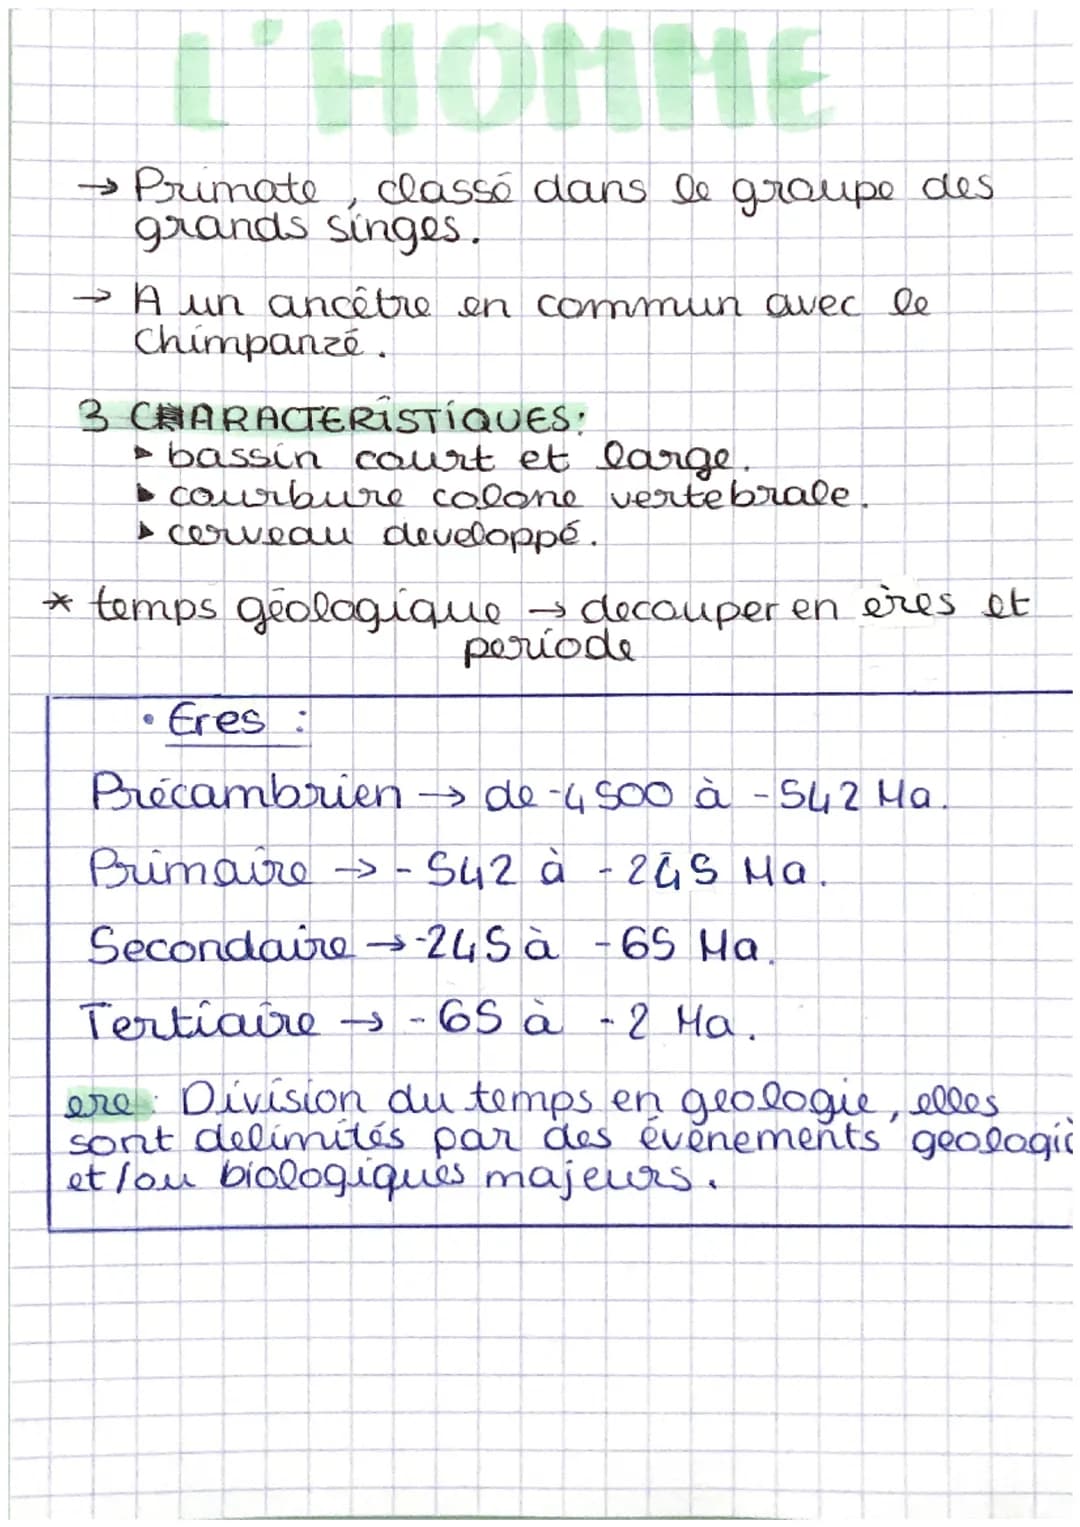 L'HOMME
→ Primate, classé dans le groupe des
grands singes.
→ A un ancêtre en commun avec le
Chimpanzé.
3 CHARACTERISTIQUES:
▸ bassin court et large.
▸ courbure colone vertebrale.
▸ cerveau developpé.
* temps géologique → decouper en ères et
periode
• Eres :
Précambrien → de -4500 à -542 Ma.
Primaire → -542 à -245 Ma.
Secondaire → -245 à -65 Ma.
Tertiaire → -65 à -2 Ma.
ere: Division du temps en geologie, elles
sont delimités par des événements geologiq
et/ou biologiques majeurs.